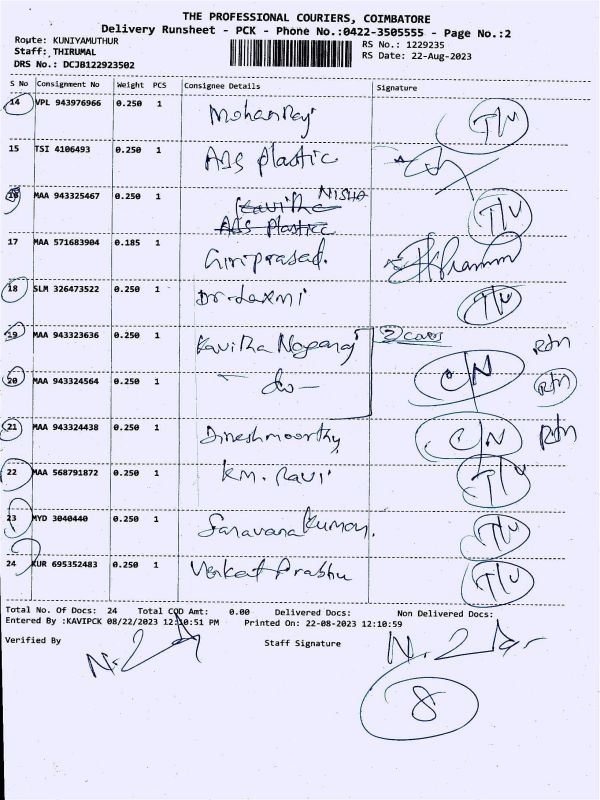 THE PROFESSIONAL COURIERS, COIMBATORE
Delivery Runsheet - PCK - Phone No.:0422-3505555 - Page No.:2
Route: KUNIYAMUTHUR
RS No.: 1229235
Staff: THIRUMAL
RS Date: 22-Aug-2023
DRS No.: DCJB122923502
S No Consignment No Weight PCS Consignee Details Signature
14 VPL 943976966 0.250 1 Mohanraj T/V
15 TSI 4106493 0.250 1 ABS plastic
16 MAA 943325467 0.250 1 Kavitha NISHA T/V
ABS plastic
17 MAA 571683904 0.185 1 Giriprasad.
18 SLM 326473522 0.250 1 Dr. Laxmi T/V
19 MAA 943323636 0.250 1 Kavitha 2 cover Rtn
20 MAA 943324564 0.250 1 - do - C/N Rtn
21 MAA 943324438 0.250 1 Dineshmoorthy C/N Rtn
22 MAA 568791872 0.250 1 KM. Ravi T/V
23 MYD 3040440 0.250 1 Saravana Kumar. T/V
24 KUR 695352483 0.250 1 Venkat Prabhu T/V
Total No. Of Docs: 24 Total COD Amt: 0.00 Delivered Docs: Non Delivered Docs:
Entered By :KAVIPCK 08/22/2023 12:10:51 PM Printed On: 22-08-2023 12:10:59
Verified By Staff Signature
8